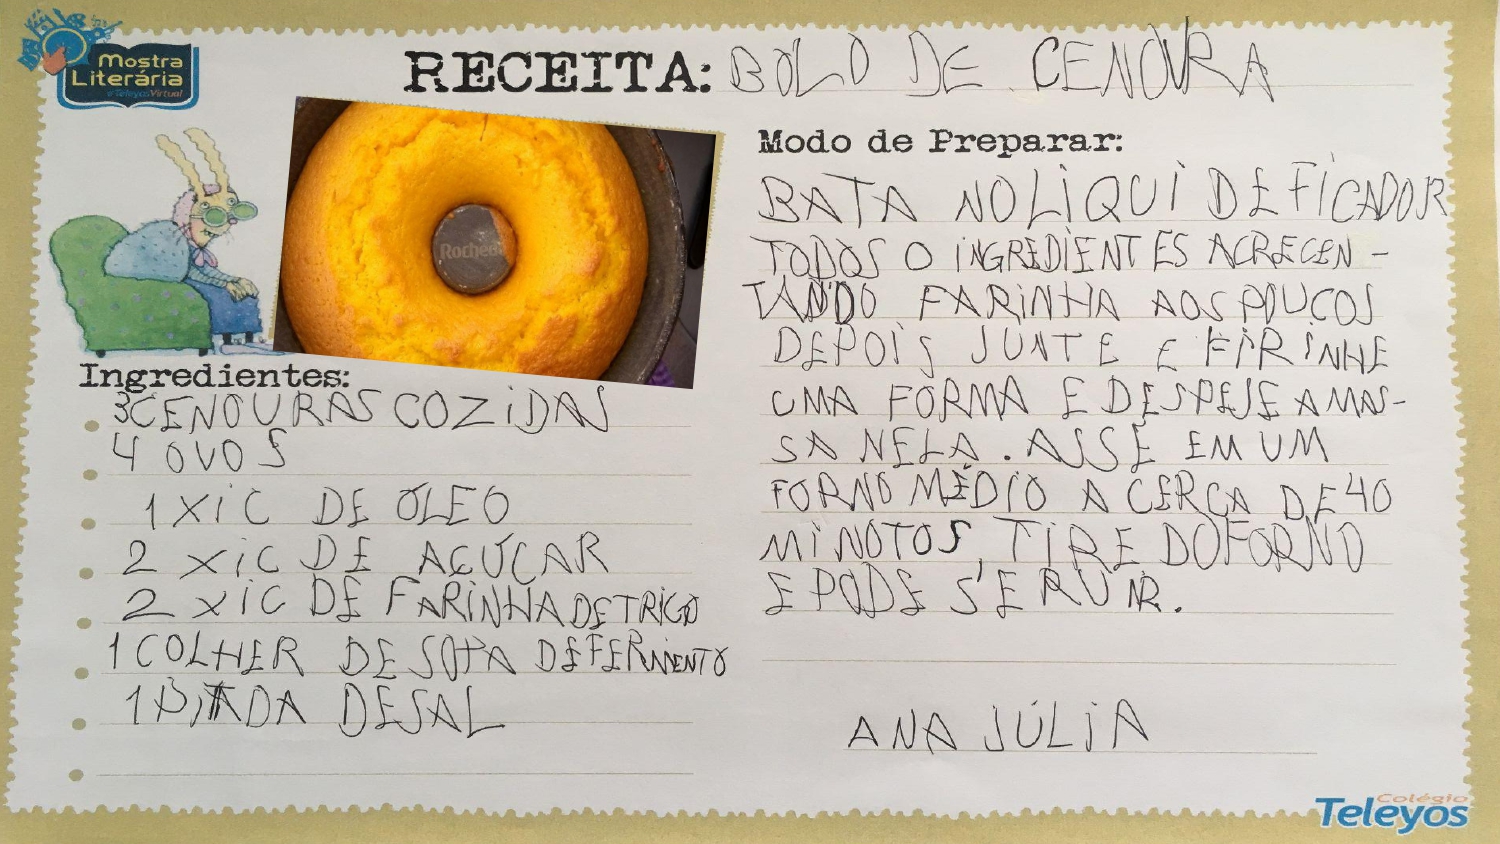 Mostra
Literária
#TeleyosVirtual
RECEITA: BOLO DE CENOURA
Rochedo
Ingredientes:
3 CENOURAS COZIDAS
4 OVOS
1 XIC DE ÓLEO
2 XIC DE AÇÚCAR
2 XIC DE FARINHA DE TRIGO
1 COLHER DE SOPA DE FERMENTO
1 PITADA DE SAL
Modo de Preparar:
BATA NO LIQUIDEFICADOR
TODOS O INGREDIENTES ACRECEN-
TANDO FARINHA AOS POUCOS
DEPOIS JUNTE E FIRINHE
UMA FORMA E DESPEJE A MAS-
SA NELA. ASSE EM UM
FORNO MÉDIO A CERCA DE 40
MINOTOS, TIRE DO FORNO
E PODE SERVIR.
ANA JÚLIA
Colégio
Teleyos